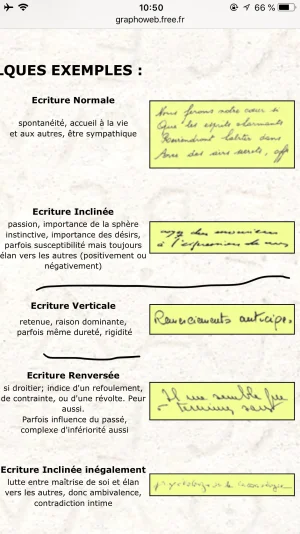 10:50
66 %
graphoweb.free.fr
LQUES EXEMPLES :
Ecriture Normale
spontanéité, accueil à la vie
et aux autres, être sympathique
Nous ferons notre cœur si
Que les esprits charmants
Reviendront habiter dans
Avec des airs
Ecriture Inclinée
passion, importance de la sphère
instinctive, importance des désirs,
parfois susceptibilité mais toujours
élan vers les autres (positivement ou
négativement)
à l'expression de
Ecriture Verticale
retenue, raison dominante,
parfois même dureté, rigidité
Remerciements anticipé.
Ecriture Renversée
si droitier; indice d'un refoulement,
de contrainte, ou d'une révolte. Peur
aussi.
Parfois influence du passé,
complexe d'infériorité aussi
Il me semble que
terminer sans
Ecriture Inclinée inégalement
lutte entre maîtrise de soi et élan
vers les autres, donc ambivalence,
contradiction intime